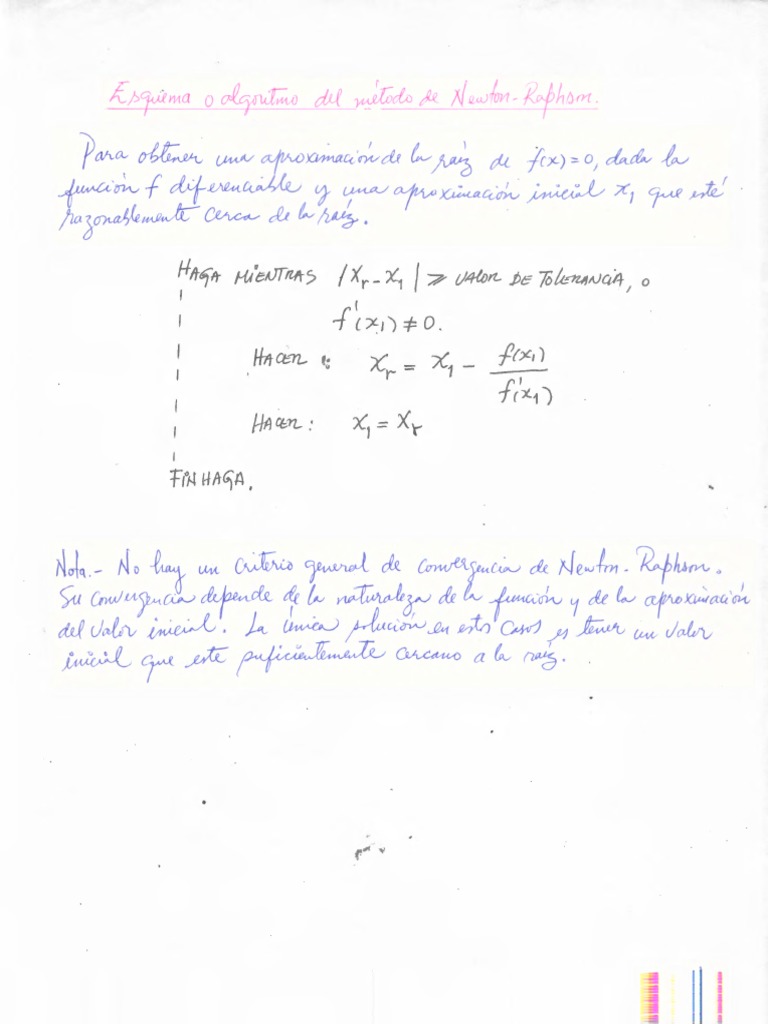 Esquema o algoritmo del método de Newton-Raphson.
Para obtener una aproximación de la raíz de f(x)=0, dada la
función f diferenciable y una aproximación inicial x₁ que esté
razonablemente cerca de la raíz.
HAGA MIENTRAS |Xᵣ - X₁| ≥ VALOR DE TOLERANCIA, o
f'(x₁) ≠ 0.
HACER : Xᵣ = X₁ - f(x₁)/f'(x₁)
HACER : X₁ = Xᵣ
FIN HAGA.
Nota.- No hay un criterio general de convergencia de Newton-Raphson.
Su convergencia depende de la naturaleza de la función y de la aproximación
del valor inicial. La única solución en estos casos es tener un valor
inicial que este suficientemente cercano a la raíz.